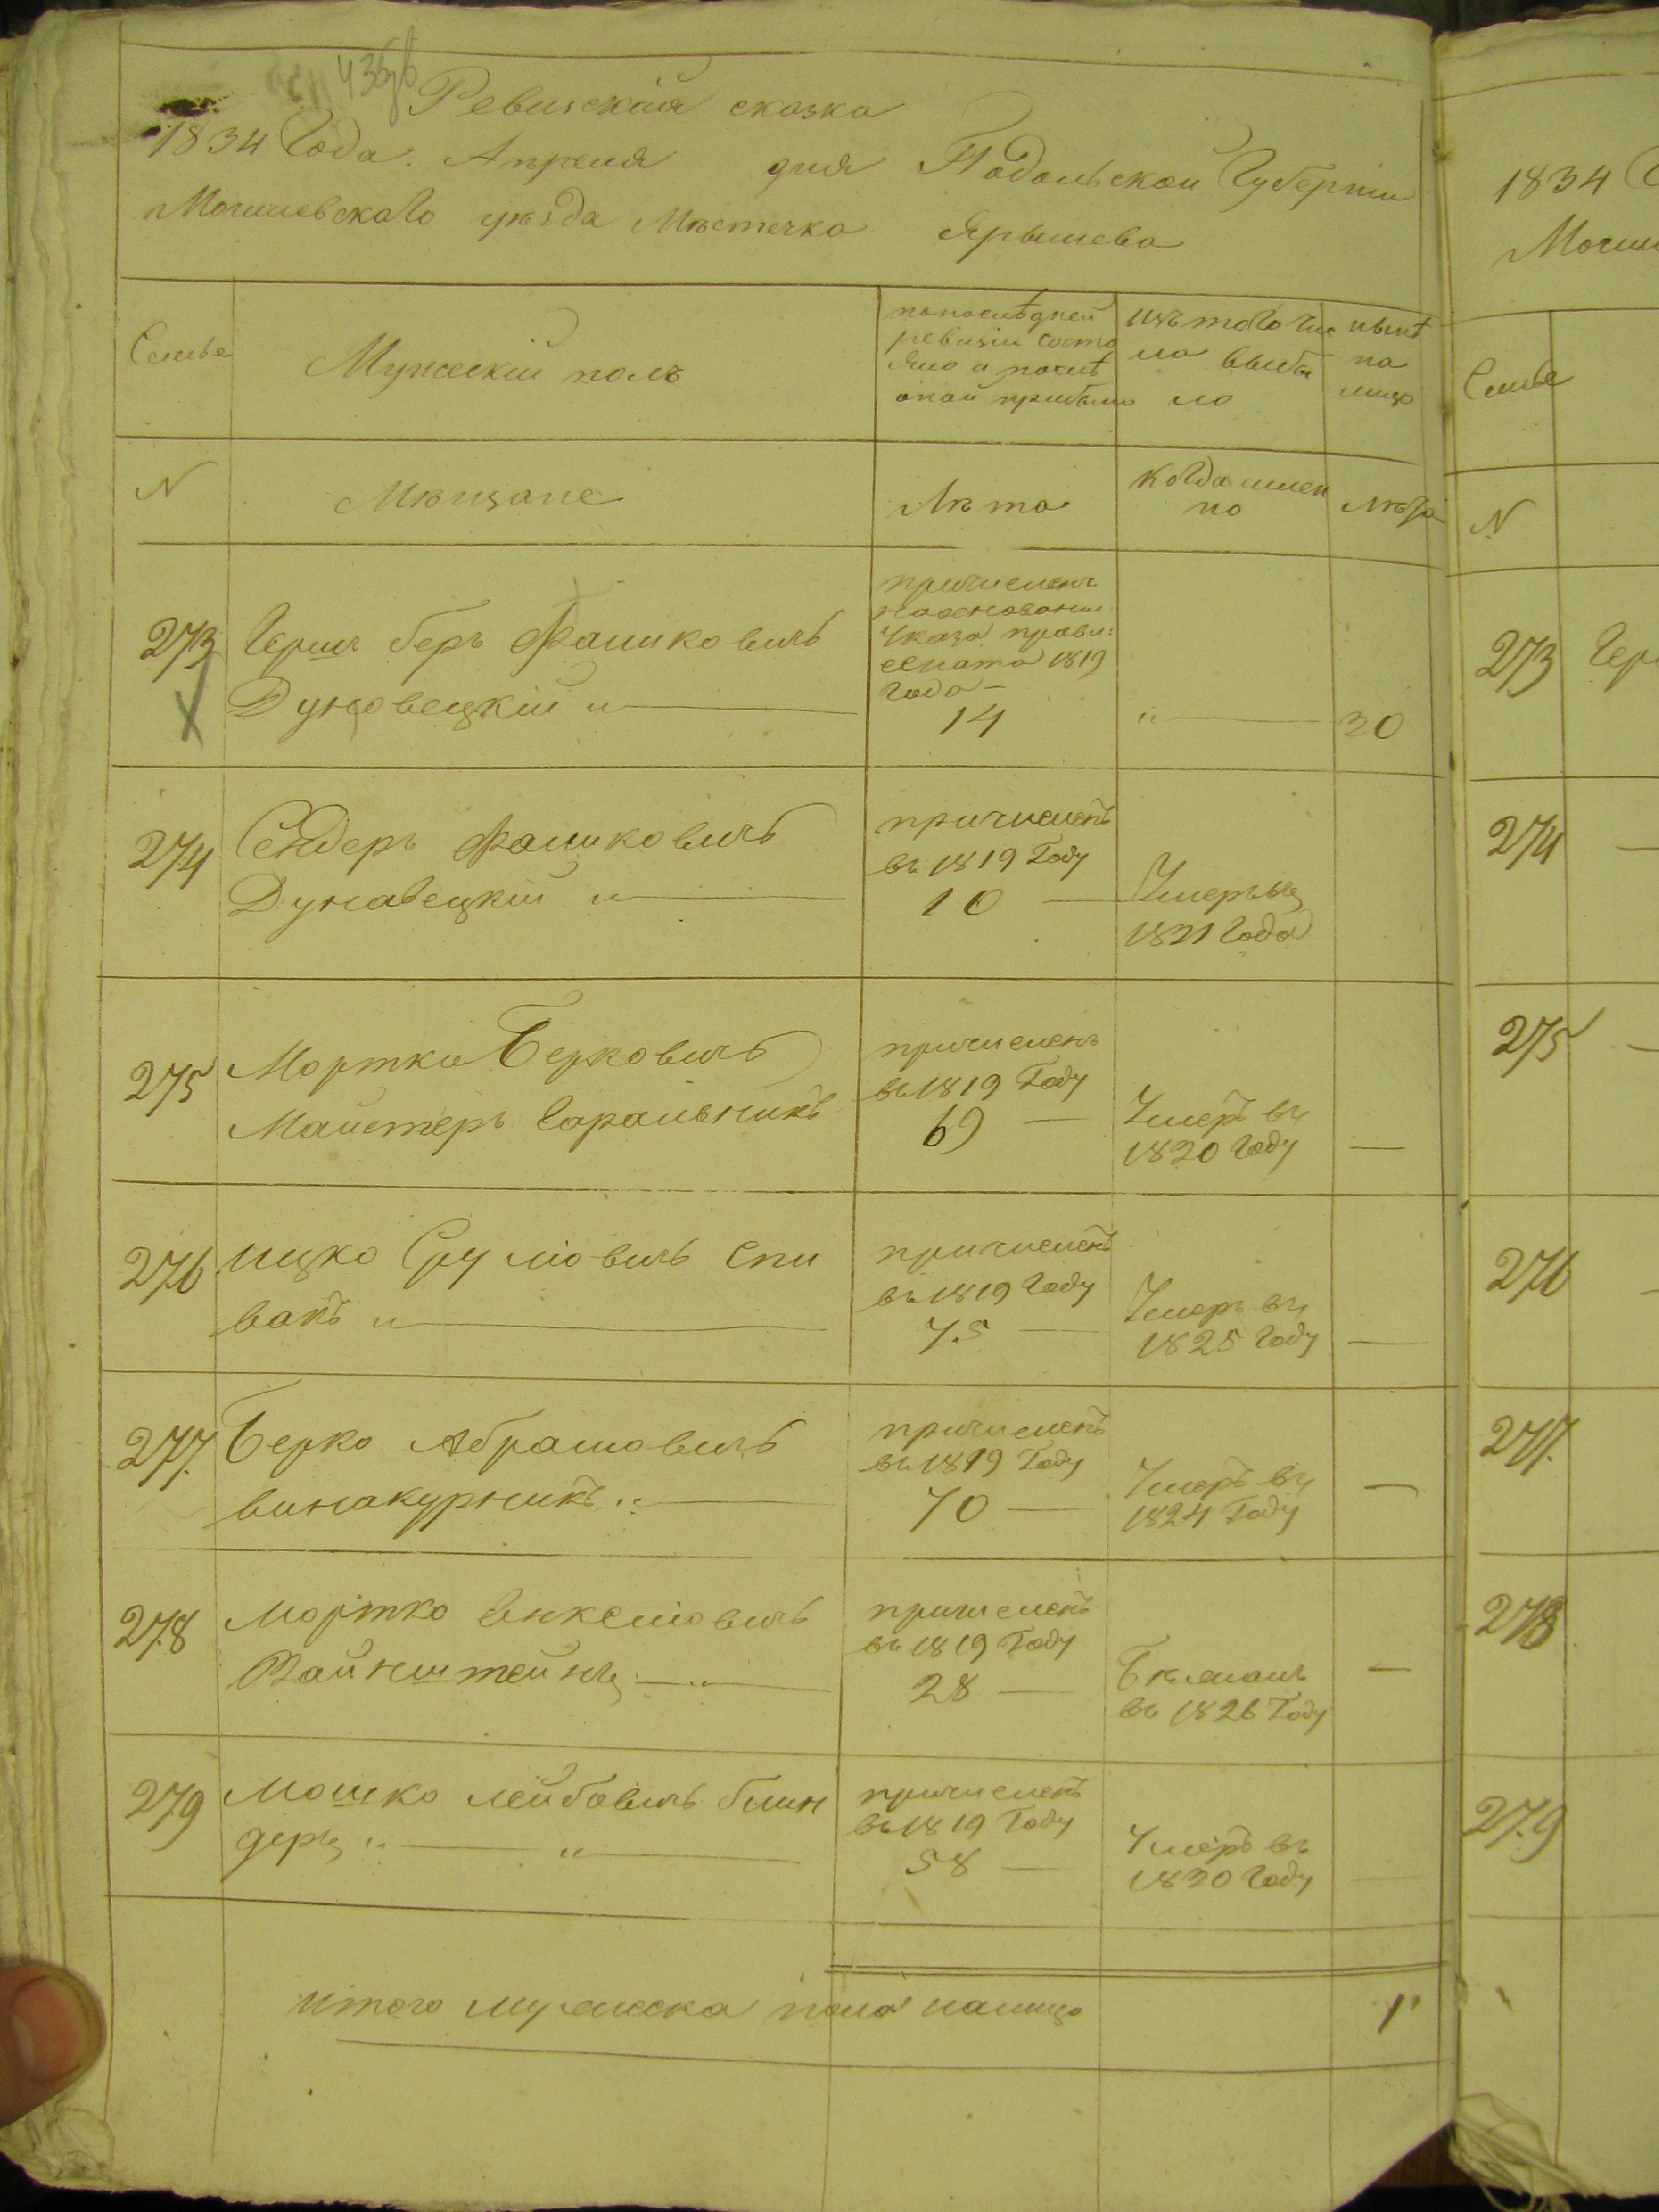 436об
Ревизская сказка
1834 Года. Апреля дня Подольской Губернии
Могилевскаго уѣзда Мѣстечка Ярышева
Семье
Мужескій полъ
попослѣдней
ревизіи состо
яло и послѣ
оной прибыло
изъ того чис
ла выбы
ло
нынѣ
на
лицо
N
Мѣщане
Лѣта
когда имен
но
лѣта
273
Гершъ беръ Фаишковичъ
Дуновецкій
причисленъ
наосновании
Указа прави:
сената 1819
Года
14
20
274
Сендеръ Фаишковичъ
Дунавецкій
причисленъ
въ 1819 Году
10
Умеръ въ
1821 Года
275
Мортко Берковичъ
Маистеръ Гаральникъ
причисленъ
въ 1819 Году
69
Умеръ въ
1820 Году
276
ицко Срулiовичъ Спи
вакъ
причисленъ
въ 1819 Году
75
Умеръ въ
1825 Году
277.
Берко Абрамовичъ
винакурникъ
причисленъ
въ 1819 Году
70
Умеръ въ
1824 Году
278
Мортко Янкелiовичъ
Вайнштейнъ
причисленъ
въ 1819 Году
28
Бѣжалъ
въ 1826 Году
279
Мошко Лейбовичъ блин
деръ
причисленъ
въ 1819 Году
58
Умеръ въ
1820 Году
итого мужеска пола налицо
1
1834
273
274
275
276
277.
278
279
Семье
N